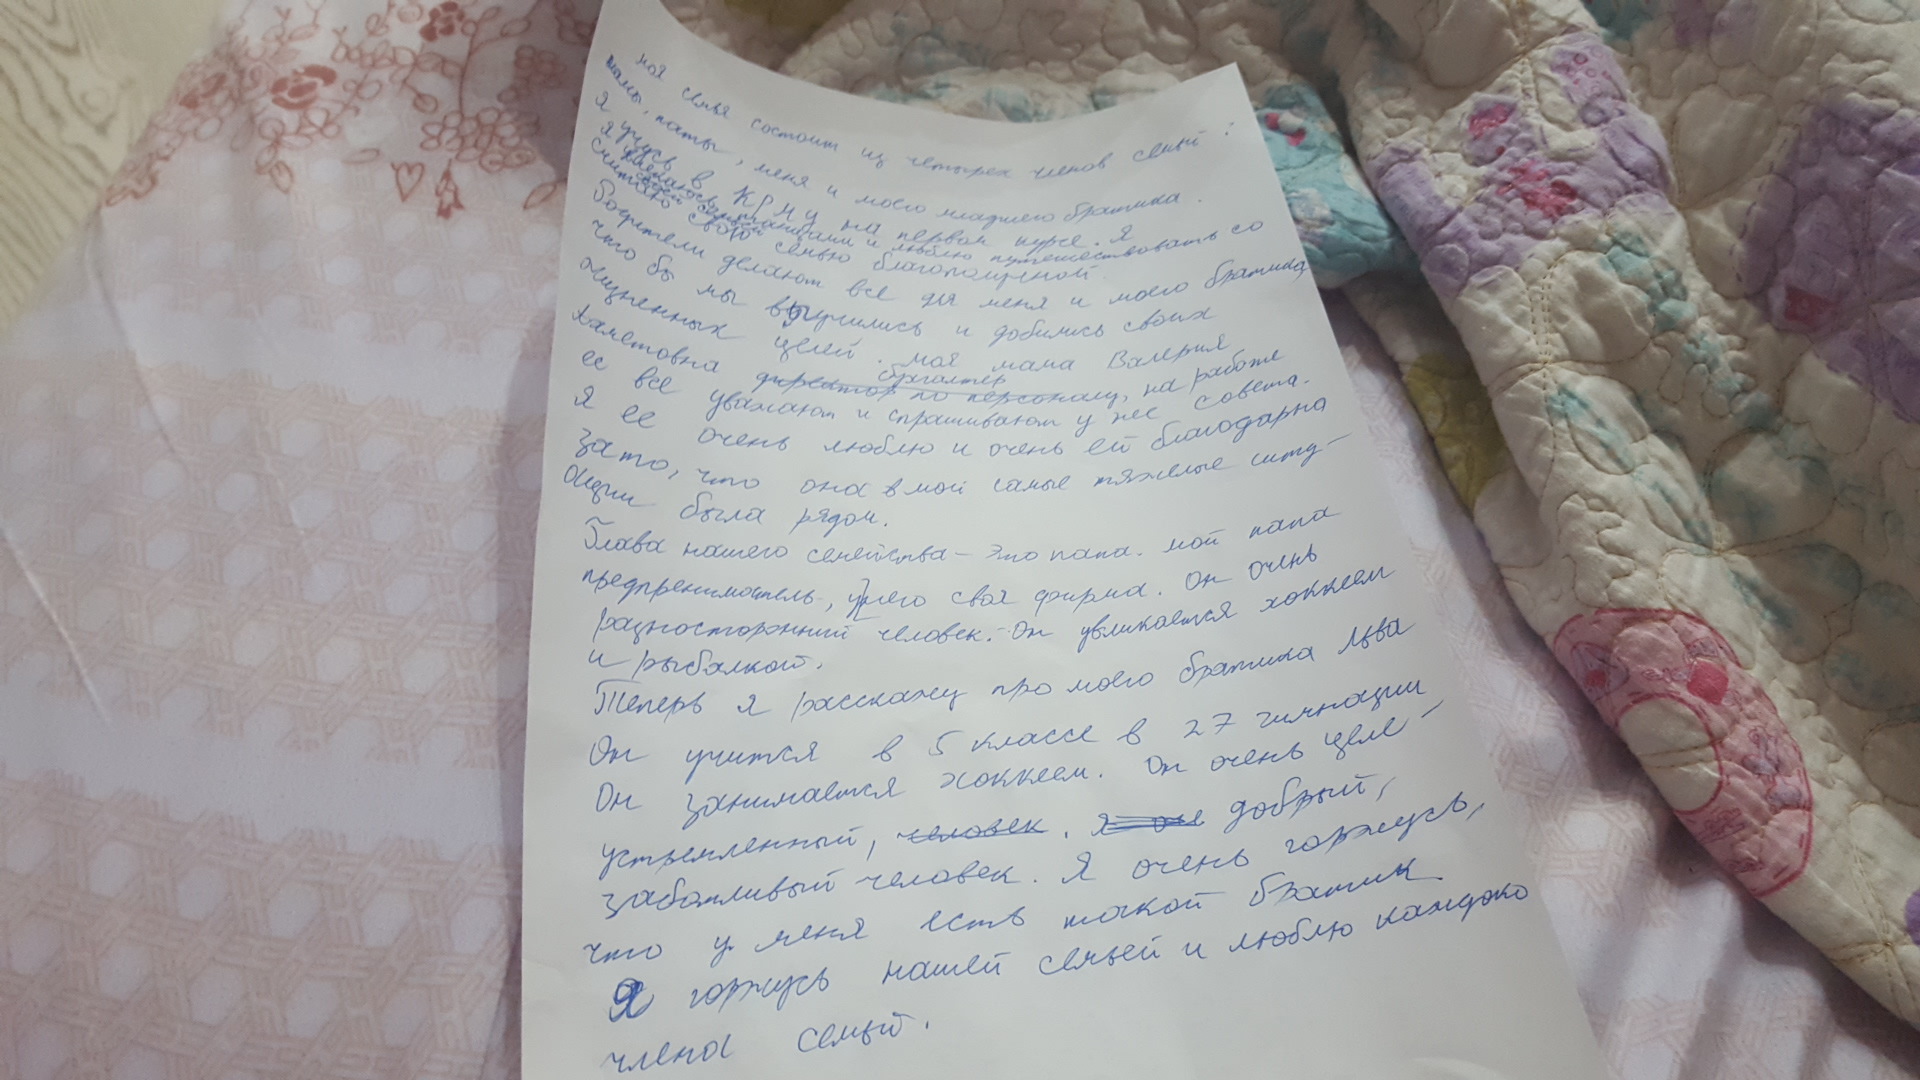 моя семья состоит из четырех членов семьй:
мамы, папы, меня и моего младшего братика.
Я учусь в КРМУ на первом курсе. Я
Я увлекаюсь танцами и люблю путешествовать со
своей семьей
считаю свою семью благополучной.
родители делают все для меня и моего братика
что бы мы выучились и добились своих
жизненных целей. моя мама Валерия
Ахметовна директор по персоналу, на работе
бухгалтер
ее все уважают и спрашивают у нее совета.
я ее очень люблю и очень ей благодарна
за то, что она в мои самые тяжелые ситу-
ации была рядом.
Глава нашего семейства – это папа. мой папа
предпрениматель, у него своя фирма. Он очень
разносторонний человек. Он увликается хоккеем
и рыбалкой.
Теперь я расскажу про моего братика Льва
Он учится в 5 классе в 27 гимнации
Он занимается хоккеем. Он очень целе-
устремленный, человек. Я добрый,
заботливый человек. Я очень горжусь,
что у меня есть такой братик
Я горжусь нашей семьей и люблю каждоко
члена семьй.